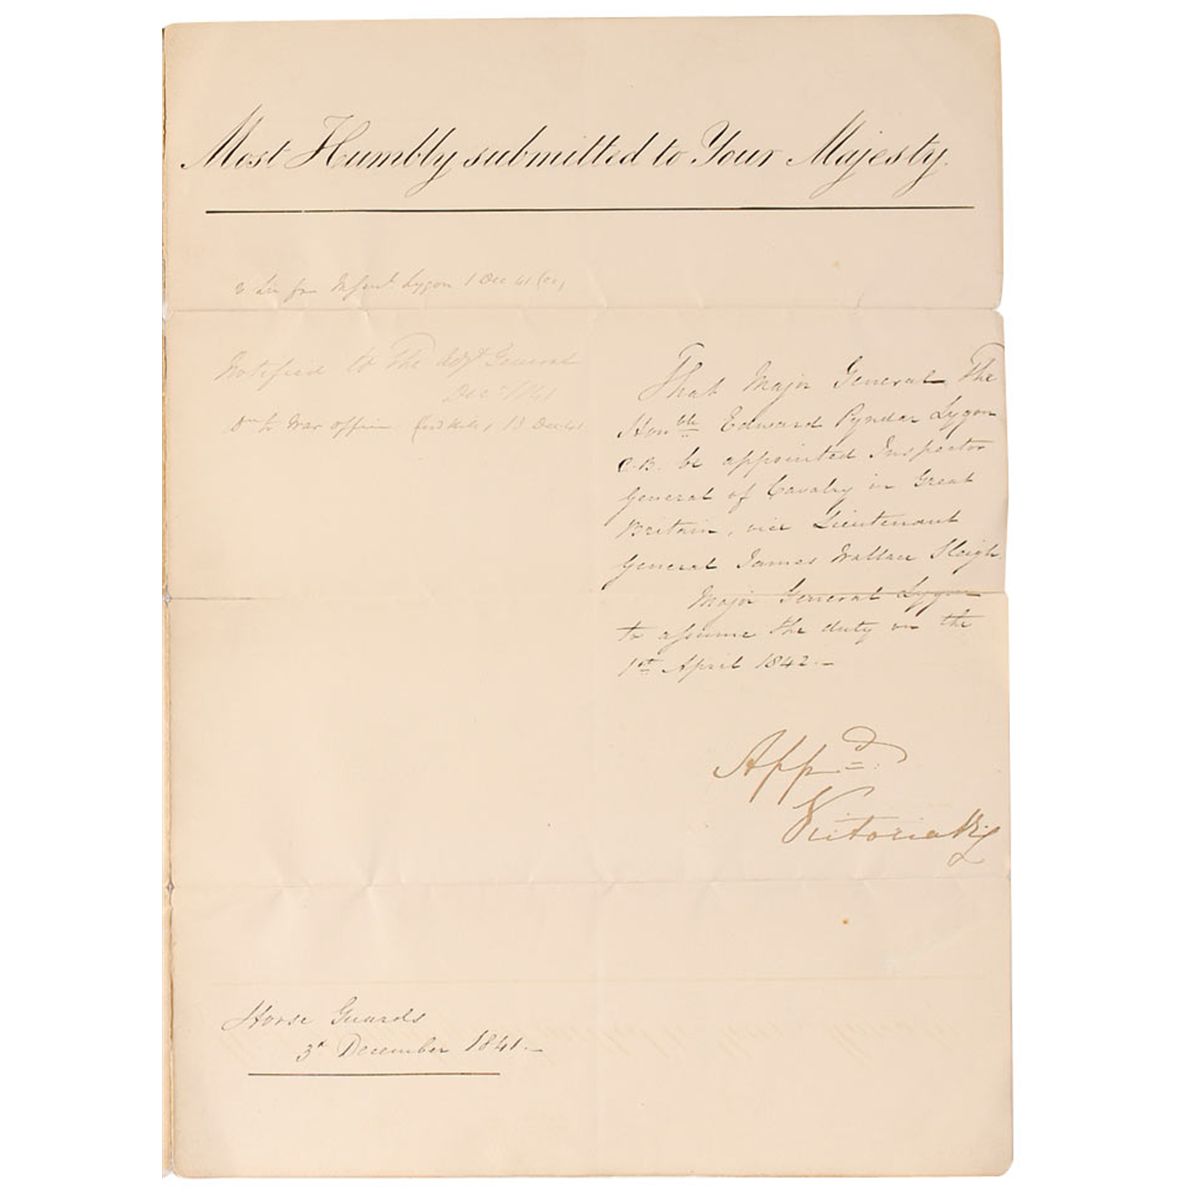 Most Humbly submitted to Your Majesty.
Lygon 1 Dec 41
Notified to The Adjt General
Decr 1841
Do to War office 13 Dec 41
That Major General The
Honble Edward Pyndar Lygon
C.B. be appointed Inspector
General of Cavalry in Great
Britain, vice Lieutenant
General James Wallace Sleigh.
Major General Lygon
to assume the duty on the
1st April 1842.–
Appd.
Victoria R
Horse Guards
3d December 1841.–